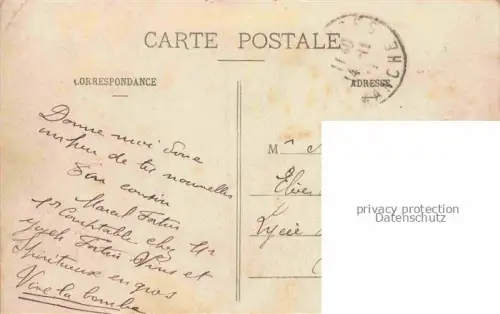 CARTE POSTALE
CORRESPONDANCE
ADRESSE
MANCHE
Donne moi donc
un peu de tes nouvelles
Ton cousin
Marcel Fortin
Comptable chez Mr
Fortin Vins et
Spiritueux en gros
Vive la bombe
M
Elève
Lycée
privacy protection
Datenschutz